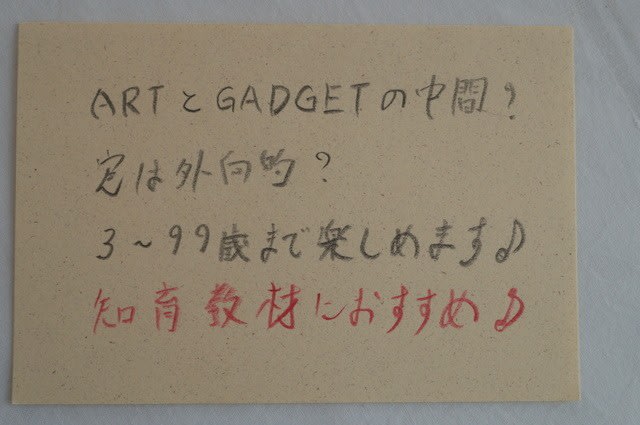 ARTとGADGETの中間?
実は外向的?
3~99歳まで楽しめます♪
知育教材におすすめ♪